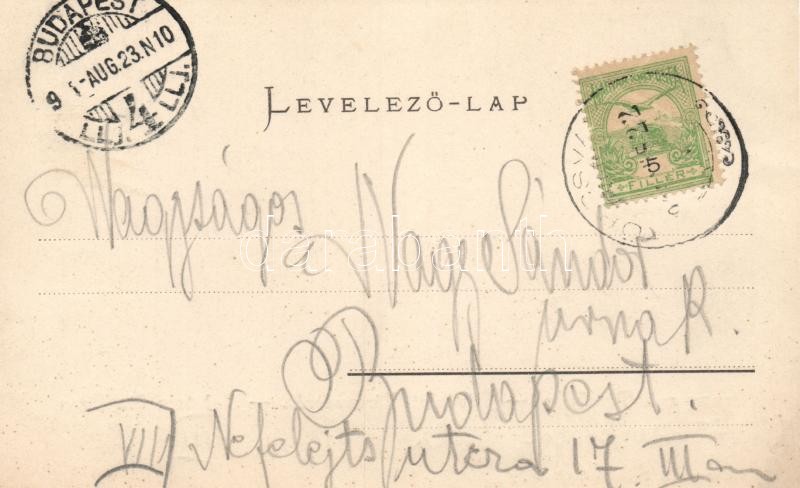 BUDAPEST
9 1-AUG.23.N10
4
LEVELEZŐ-LAP
5
FILLER
Nagyságos
Nagy Sándor
á
urnak.
Budapest.
VII Nefelejts utcza 17. III em
darabanth